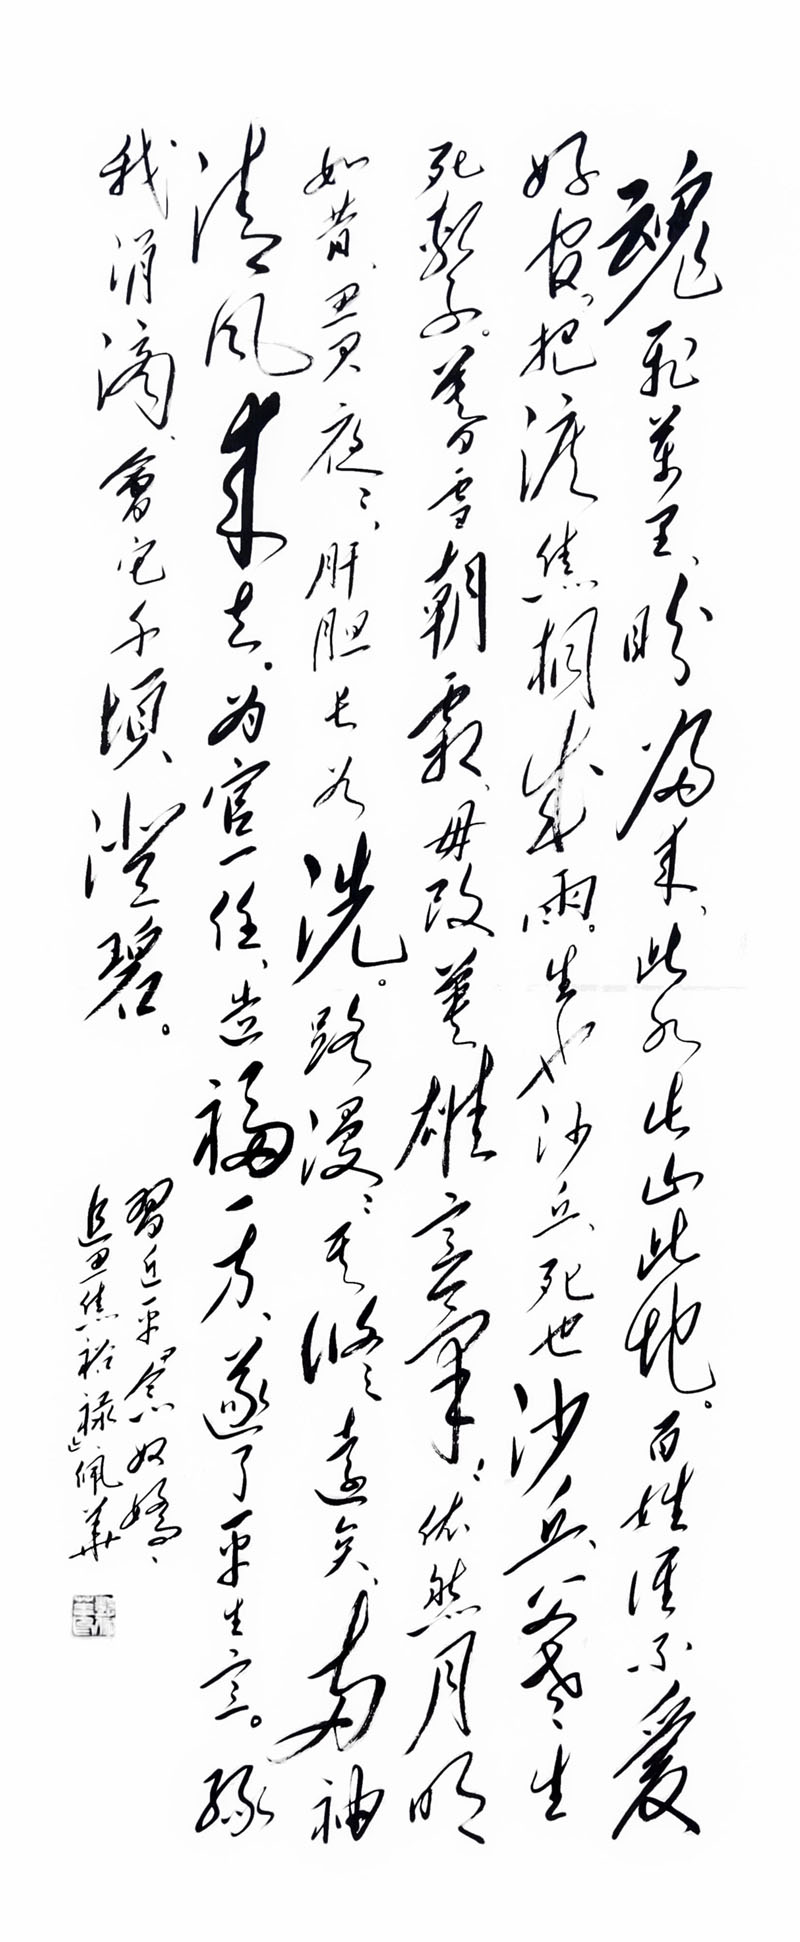 魂飛萬里、盼歸来、此水此山此地。百姓谁不爱
好官、把淚焦桐成雨。生也沙丘、死也沙丘、父老生
死繫。暮雪朝霜、毋改英雄意氣;依然月明
如昔、思君夜々、肝胆长如洗。路漫々其修遠矣、两袖
清風来去。为官一任、造福一方、遂了平生意。緑
我涓滴、會它千頃澄碧。
習近平《念奴嬌、
追思焦裕禄》佩華